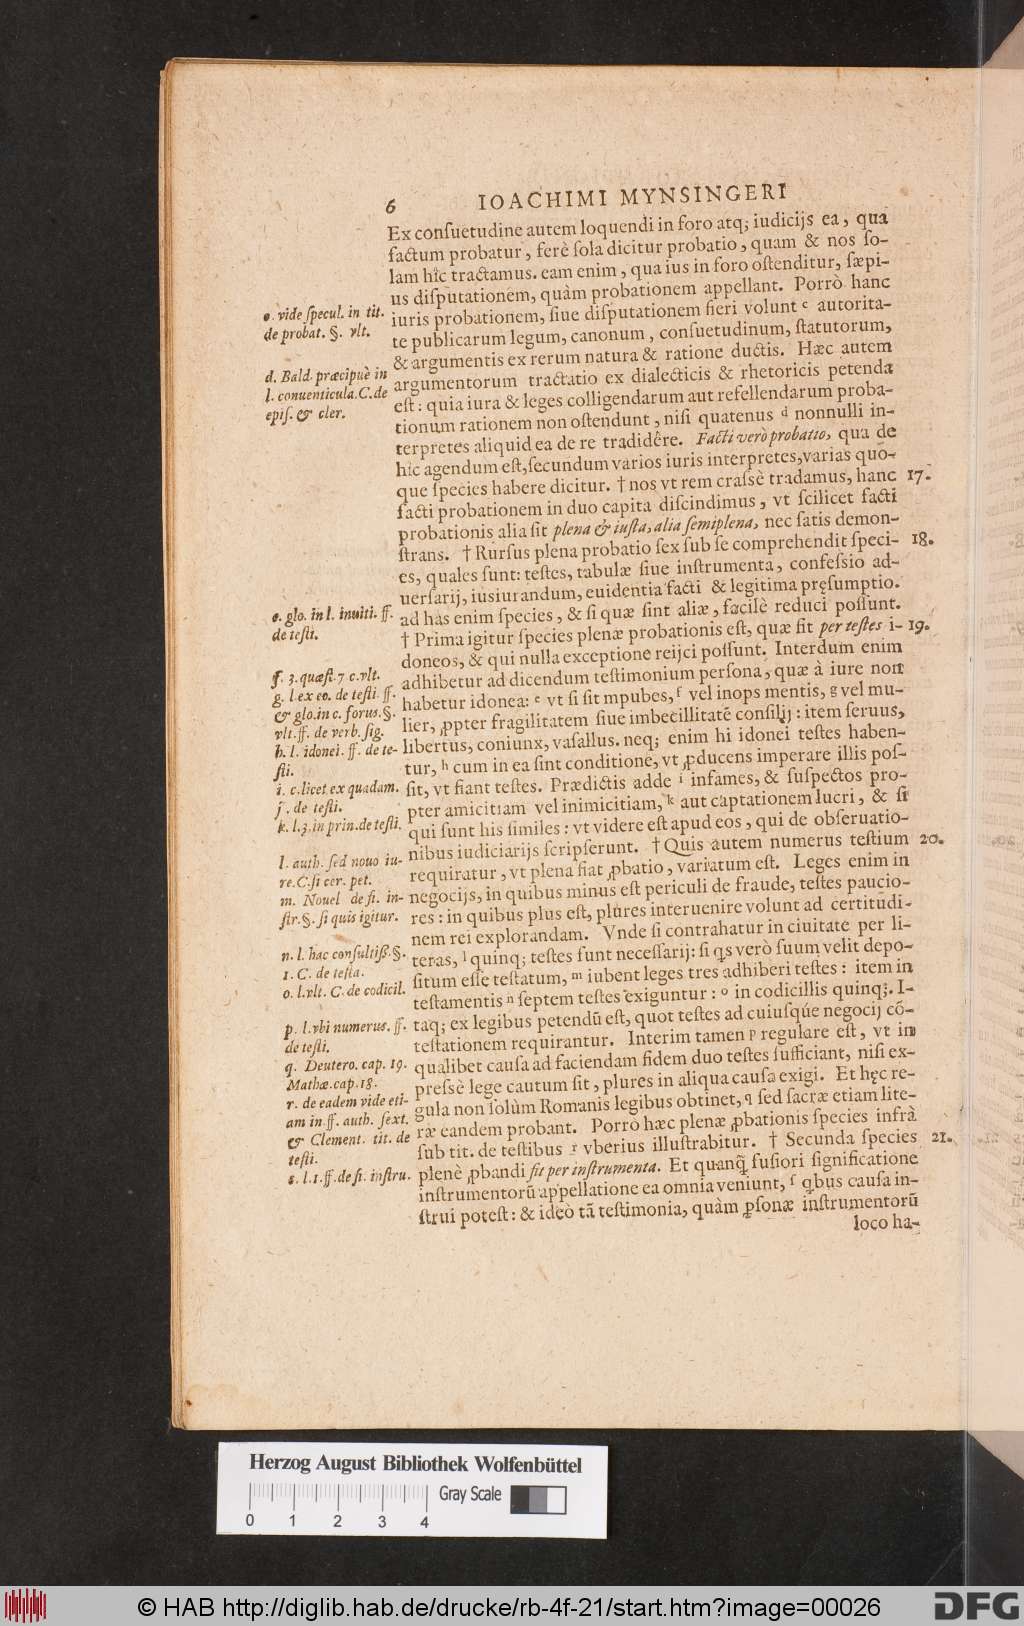 6 IOACHIMI MYNSINGERI
Ex conſuetudine autem loquendi in foro atq; iudicijs ea, qua
factum probatur, ferè ſola dicitur probatio, quam & nos ſo-
lam hîc tractamus. eam enim, qua ius in foro oſtenditur, ſæpi-
us diſputationem, quàm probationem appellant. Porrò hanc
iuris probationem, ſiue diſputationem fieri volunt c autorita-
te publicarum legum, canonum, conſuetudinum, ſtatutorum,
& argumentis ex rerum natura & ratione ductis. Hæc autem
argumentorum tractatio ex dialecticis & rhetoricis petenda
eſt: quia iura & leges colligendarum aut refellendarum proba-
tionum rationem non oſtendunt, niſi quatenus d nonnulli in-
terpretes aliquid ea de re tradidêre. Facti verò probatio, qua de
hîc agendum eſt, ſecundum varios iuris interpretes, varias quo-
que ſpecies habere dicitur. † nos vt rem craſsè tradamus, hanc
facti probationem in duo capita diſcindimus, vt ſcilicet facti
probationis alia ſit plena & iuſta, alia ſemiplena, nec ſatis demon-
ſtrans. † Rurſus plena probatio ſex ſub ſe comprehendit ſpeci-
es, quales ſunt: teſtes, tabulæ ſiue inſtrumenta, confeſsio ad-
uerſarij, iusiurandum, euidentia facti & legitima pręſumptio.
ad has enim ſpecies, & ſi quæ ſint aliæ, facilè reduci poſſunt.
† Prima igitur ſpecies plenæ probationis eſt, quæ fit per teſtes i-
doneos, & qui nulla exceptione reijci poſſunt. Interdum enim
adhibetur ad dicendum teſtimonium perſona, quæ à iure non
habetur idonea: e vt ſi ſit impubes, f vel inops mentis, g vel mu-
lier, ꝓpter fragilitatem ſiue imbecillitatẽ conſilij: item ſeruus,
libertus, coniunx, vaſallus. neq; enim hi idonei teſtes haben-
tur, h cum in ea ſint conditione, vt ꝓducens imperare illis poſ-
ſit, vt fiant teſtes. Prædictis adde i infames, & ſuſpectos pro-
pter amicitiam vel inimicitiam, k aut captationem lucri, & ſi
qui ſunt his ſimiles: vt videre eſt apud eos, qui de obſeruatio-
nibus iudiciarijs ſcripſerunt. † Quis autem numerus teſtium
requiratur, vt plena fiat ꝓbatio, variatum eſt. Leges enim in
negocijs, in quibus minus eſt periculi de fraude, teſtes paucio-
res: in quibus plus eſt, plures interuenire volunt ad certitudi-
nem rei explorandam. Vnde ſi contrahatur in ciuitate per li-
teras, l quinq; teſtes ſunt neceſſarij: ſi q̃s verò ſuum velit depo-
ſitum eſſe teſtatum, m iubent leges tres adhiberi teſtes: item in
teſtamentis n ſeptem teſtes exiguntur: o in codicillis quinq;. I-
taq; ex legibus petendũ eſt, quot teſtes ad cuiuſque negocij cõ-
teſtationem requirantur. Interim tamen p regulare eſt, vt in
qualibet cauſa ad faciendam fidem duo teſtes ſufficiant, niſi ex-
preſsè lege cautum ſit, plures in aliqua cauſa exigi. Et hęc re-
gula non ſolùm Romanis legibus obtinet, q ſed ſacræ etiam lite-
ræ eandem probant. Porrò hæc plenæ ꝓbationis ſpecies infrà
ſub tit. de teſtibus r vberius illuſtrabitur. † Secunda ſpecies
plenè ꝓbandi fit per inſtrumenta. Et quanq̃ fuſiori ſignificatione
inſtrumentorũ appellatione ea omnia veniunt, ſ q̃bus cauſa in-
ſtrui poteſt: & ideò tã teſtimonia, quàm ꝑſonæ inſtrumentorũ
loco ha-
o. vide ſpecul. in tit.
de probat. §. vlt.
d. Bald. præcipuè in
l. conuenticula. C. de
epiſ. & cler.
e. glo. in l. inuiti. ff.
de teſti.
f. 3. quæſt. 7 c. vlt.
g. l. ex eo. de teſti. ff.
& glo. in c. forus. §.
vlt. ff. de verb. ſig.
h. l. idonei. ff. de te-
ſti.
i. c. licet ex quadam.
j. de teſti.
k. l. 3. in prin. de teſti.
l. auth. ſed nouo iu-
re. C. ſi cer. pet.
m. Nouel de fi. in-
ſtr. §. ſi quis igitur.
n. l. hac conſultiſſ. §.
1. C. de teſta.
o. l. vlt. C. de codicil.
p. l. vbi numerus. ff.
de teſti.
q. Deutero. cap. 19.
Mathæ. cap. 18.
r. de eadem vide eti-
am in ff. auth. ſext.
& Clement. tit. de
teſti.
s. l. 1. ff. de fi. inſtru.
17.
18.
19.
20.
21.
Herzog August Bibliothek Wolfenbüttel
Gray Scale
0 1 2 3 4
© HAB http://diglib.hab.de/drucke/rb-4f-21/start.htm?image=00026
DFG